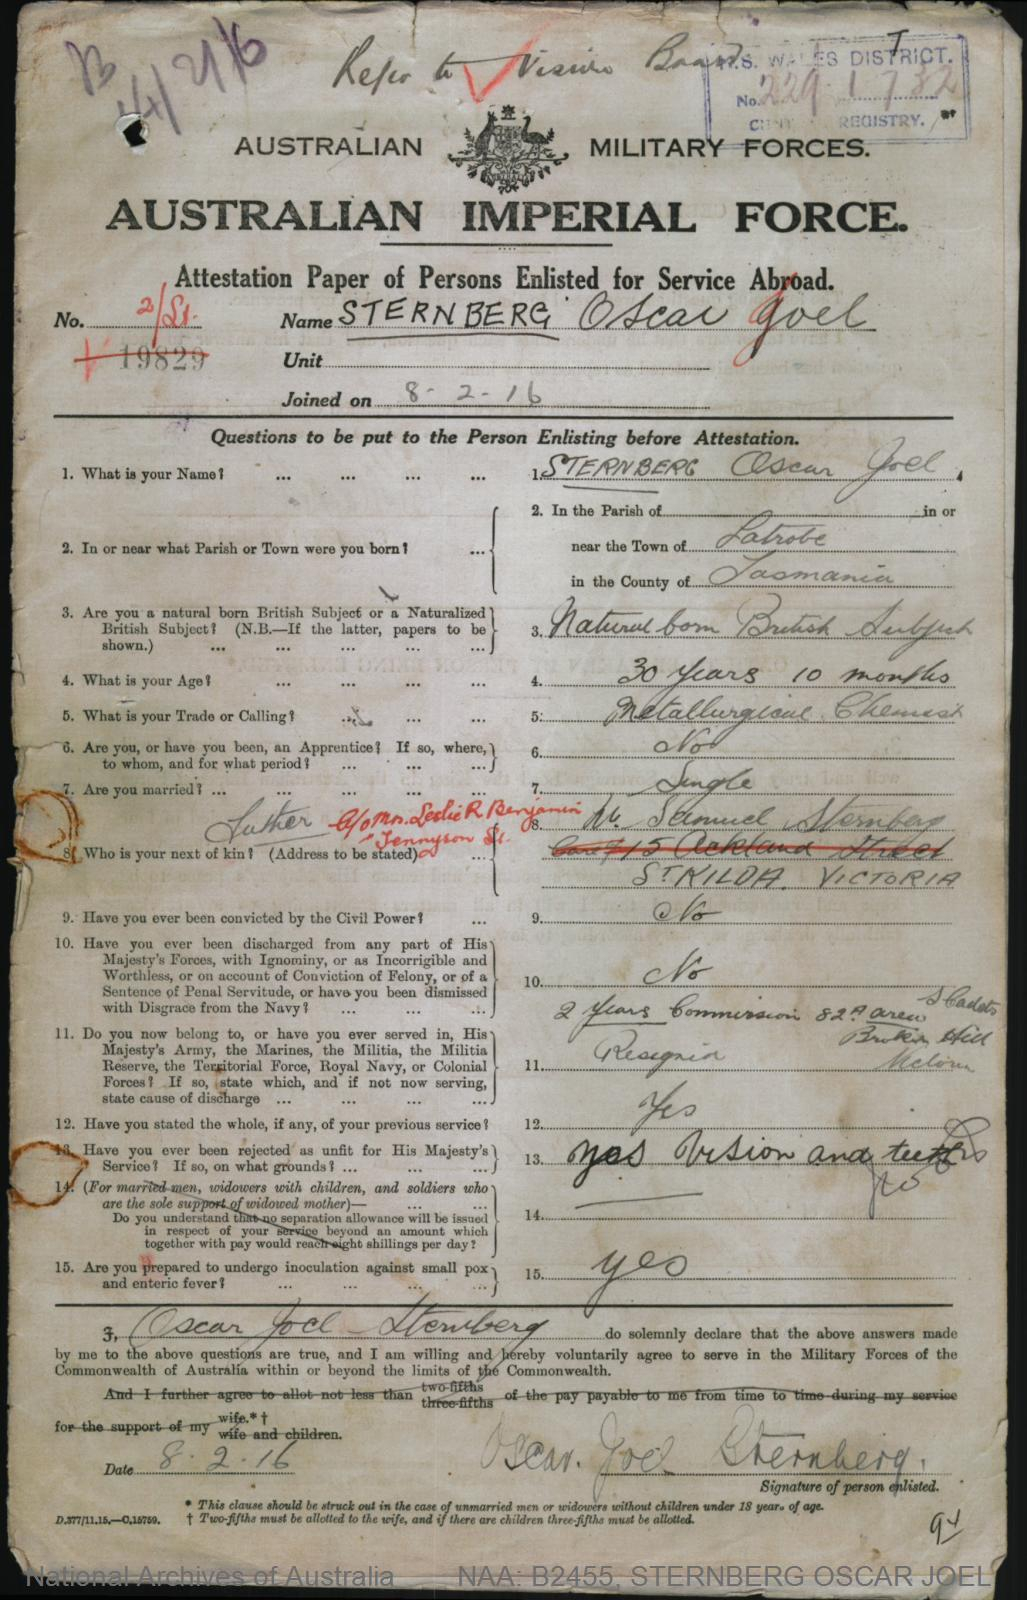 4/2/16
Refer to Vision Board
N.S. WALES DISTRICT.
No. 229 1 732
REGISTRY.
AUSTRALIAN MILITARY FORCES.
AUSTRALIAN IMPERIAL FORCE.
Attestation Paper of Persons Enlisted for Service Abroad.
No. 2/Lt. Name STERNBERG Oscar Joel
19829 Unit
Joined on 8-2-16
Questions to be put to the Person Enlisting before Attestation.
1. What is your Name? ... ... ... ... 1. STERNBERG Oscar Joel
2. In or near what Parish or Town were you born? ... 2. In the Parish of in or
near the Town of Latrobe
in the County of Tasmania
3. Are you a natural born British Subject or a Naturalized
British Subject? (N.B.—If the latter, papers to be
shown.) ... ... ... ... ... 3. Natural born British Subject
4. What is your Age? ... ... ... ... 4. 30 years 10 months
5. What is your Trade or Calling? ... ... ... 5. Metallurgical Chemist
6. Are you, or have you been, an Apprentice? If so, where,
to whom, and for what period? ... ... ... 6. No
7. Are you married? ... ... ... ... ... 7. Single
Father C/o Mrs. Leslie R Benjamin
" Tennyson St.
8. Who is your next of kin? (Address to be stated) ... 8. Mr. Samuel Sternberg
15 Ackland Street
ST KILDA. VICTORIA
9. Have you ever been convicted by the Civil Power? ... 9. No
10. Have you ever been discharged from any part of His
Majesty's Forces, with Ignominy, or as Incorrigible and
Worthless, or on account of Conviction of Felony, or of a
Sentence of Penal Servitude, or have you been dismissed
with Disgrace from the Navy? ... ... ... 10. No
11. Do you now belong to, or have you ever served in, His
Majesty's Army, the Marines, the Militia, the Militia
Reserve, the Territorial Force, Royal Navy, or Colonial
Forces? If so, state which, and if not now serving,
state cause of discharge ... ... ... ... 11. 2 years Commission 82A area S Cadets
Broken Hill
Resigned
12. Have you stated the whole, if any, of your previous service? 12. Yes
13. Have you ever been rejected as unfit for His Majesty's
Service? If so, on what grounds? ... ... ... 13. yes Vision and teeth
14. (For married men, widowers with children, and soldiers who
are the sole support of widowed mother)— ... ...
Do you understand that no separation allowance will be issued
in respect of your service beyond an amount which
together with pay would reach eight shillings per day? 14.
15. Are you prepared to undergo inoculation against small pox
and enteric fever? ... ... ... ... 15. yes
I, Oscar Joel Sternberg do solemnly declare that the above answers made
by me to the above questions are true, and I am willing and hereby voluntarily agree to serve in the Military Forces of the
Commonwealth of Australia within or beyond the limits of the Commonwealth.
And I further agree to allot not less than two-fifths three-fifths of the pay payable to me from time to time during my service
for the support of my wife.* † wife and children.
Date 8.2.16 Oscar Joel Sternberg.
Signature of person enlisted.
* This clause should be struck out in the case of unmarried men or widowers without children under 18 years of age.
D.377/11.15.—C.15759. † Two-fifths must be allotted to the wife, and if there are children three-fifths must be allotted.
94
National Archives of Australia NAA: B2455, STERNBERG OSCAR JOEL